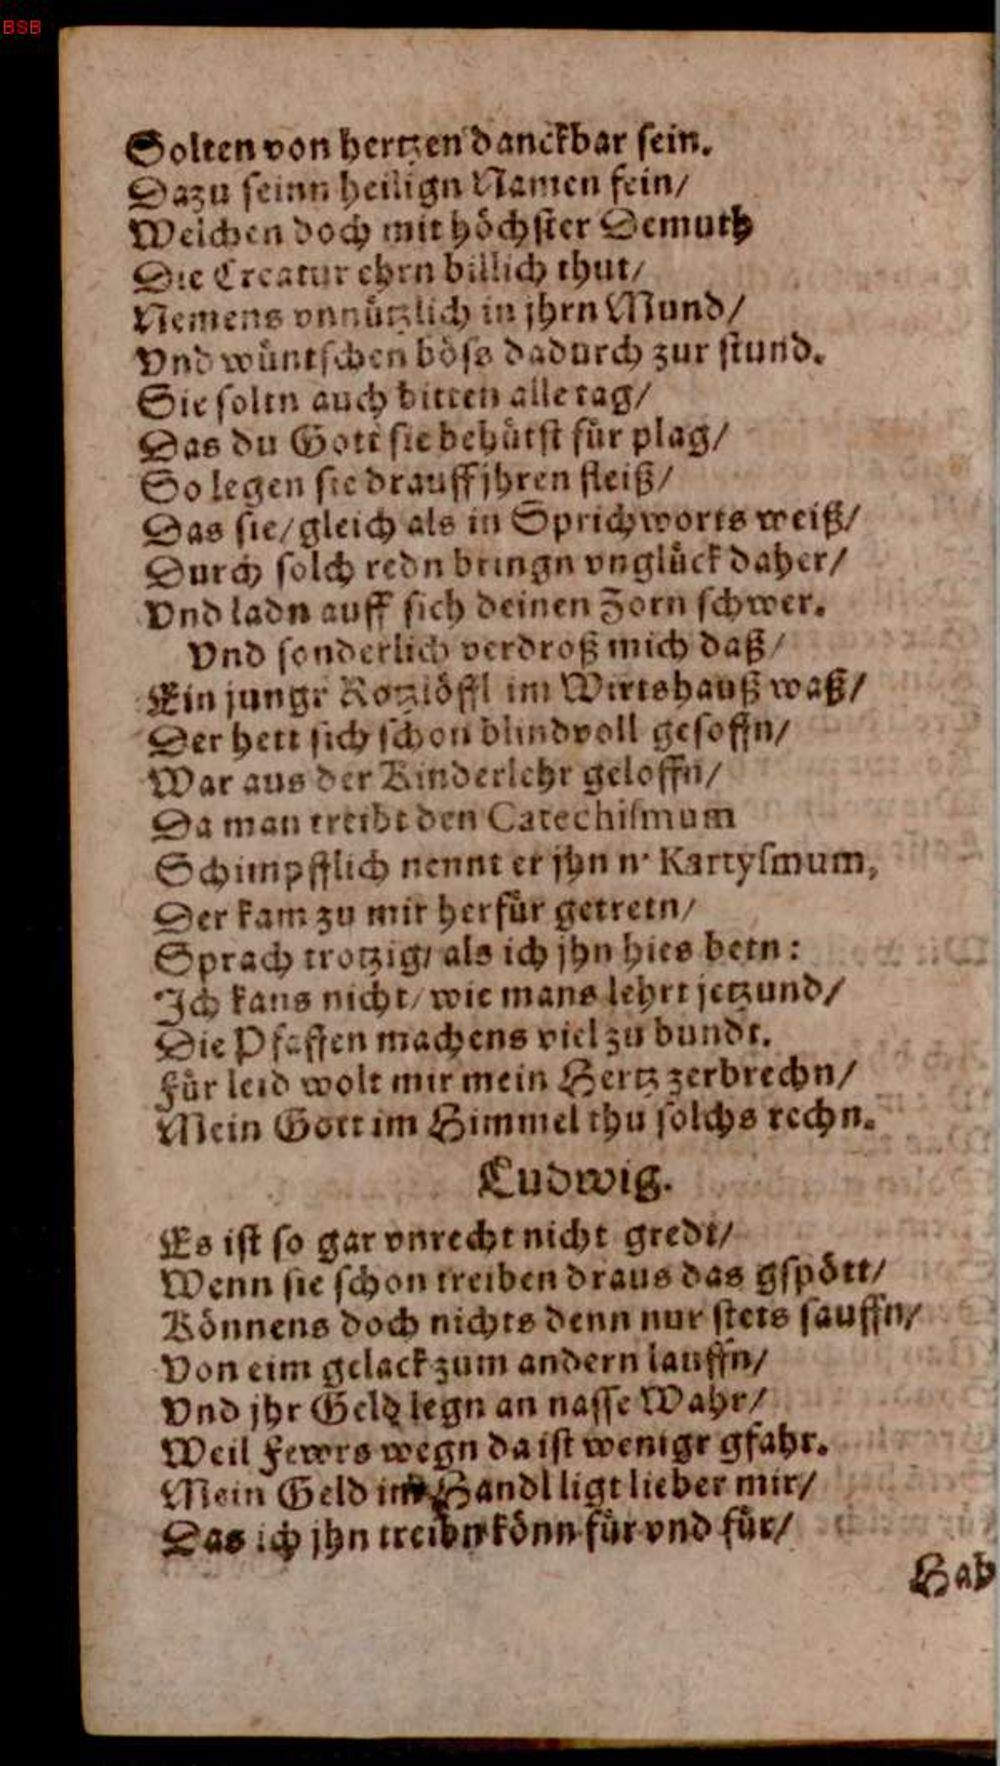 BSB
Solten von hertzen danckbar sein.
Dazu seinn heilign Namen fein/
Welchen doch mit höchster Demuth
Die Creatur ehrn billich thut/
Nemens vnnützlich in jhrn Mund/
Vnd wüntschen böss dadurch zur stund.
Sie soltn auch bitten alle tag/
Das du Gott sie behütst für plag/
So legen sie drauff jhren fleiß/
Das sie/gleich als in Sprichworts weiß/
Durch solch redn bringn vnglück daher/
Vnd ladn auff sich deinen Zorn schwer.
Vnd sonderlich verdroß mich daß/
Ein jungr Rotzlöffl im Wirtshauß waß/
Der hett sich schon blindvoll gesoffn/
War aus der Kinderlehr geloffn/
Da man treibt den Catechismum
Schimpfflich nennt er jhn n' Kartysmum,
Der kam zu mir herfür getretn/
Sprach trotzig/ als ich jhn hies betn:
Ich kans nicht/ wie mans lehrt jetzund/
Die Pfaffen machens viel zu bundt.
Für leid wolt mir mein Hertz zerbrechn/
Mein Gott im Himmel thu solchs rechn.
Ludwig.
Es ist so gar vnrecht nicht gredt/
Wenn sie schon treiben draus das gspött/
Können​s doch nichts denn nur stets sauffn/
Von eim gelack zum andern lauffn/
Vnd jhr Geld legn an nasse Wahr/
Weil Fewrs wegn da ist wenigr gfahr.
Mein Geld im Handl ligt lieber mir/
Das ich jhn treibn könn für vnd für/
Hab